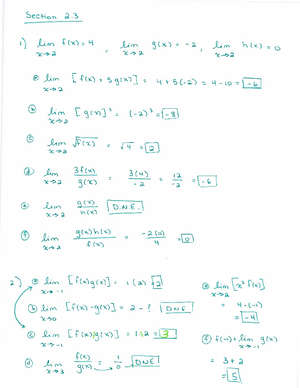 Section 2.3
1) lim x→2 f(x) = 4 , lim x→2 g(x) = -2 , lim x→2 h(x) = 0
(a) lim x→2 [f(x) + 5g(x)] = 4 + 5(-2) = 4 - 10 = -6
(b) lim x→2 [g(x)]³ = (-2)³ = -8
(c) lim x→2 √f(x) = √4 = 2
(d) lim x→2 3f(x)/g(x) = 3(4)/-2 = 12/-2 = -6
(e) lim x→2 g(x)/h(x) D.N.E.
(f) lim x→2 g(x)h(x)/f(x) = -2(0)/4 = 0
2) (a) lim x→-1 [f(x)g(x)] = 1(2) = 2
(b) lim x→0 [f(x)-g(x)] = 2 - ? DNE
(c) lim x→-1 [f(x)g(x)] = 1+2 = 3
(d) lim x→3 f(x)/g(x) = 1/0 DNE
(e) lim x→2 [x² f(x)]
= 4·(-1)
= -4
(f) f(-1) + lim x→-1 g(x)
= 3 + 2
= 5